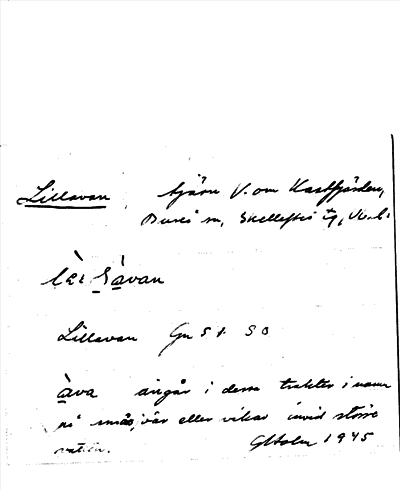 Lillavan tjärn V. om Kastfjärden,
Bureå sn, Skellefteå tg, Vb. l.
Lillavan Gn 51 SO
àva ingår i dessa trakter i namn
på småsjöar eller vikar invid större
vatten. 1945